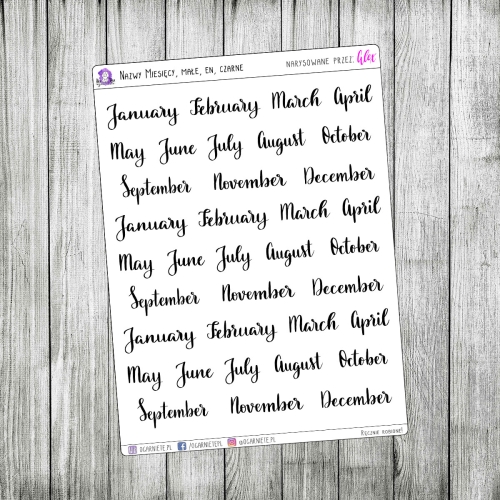 Nazwy Miesięcy, małe, en, czarne narysowane przez: Alex
January February March April
May June July August October
September November December
January February March April
May June July August October
September November December
January February March April
May June July August October
September November December
Ręcznie robione!
ogarniete.pl /ogarnietepl @ogarniete.pl